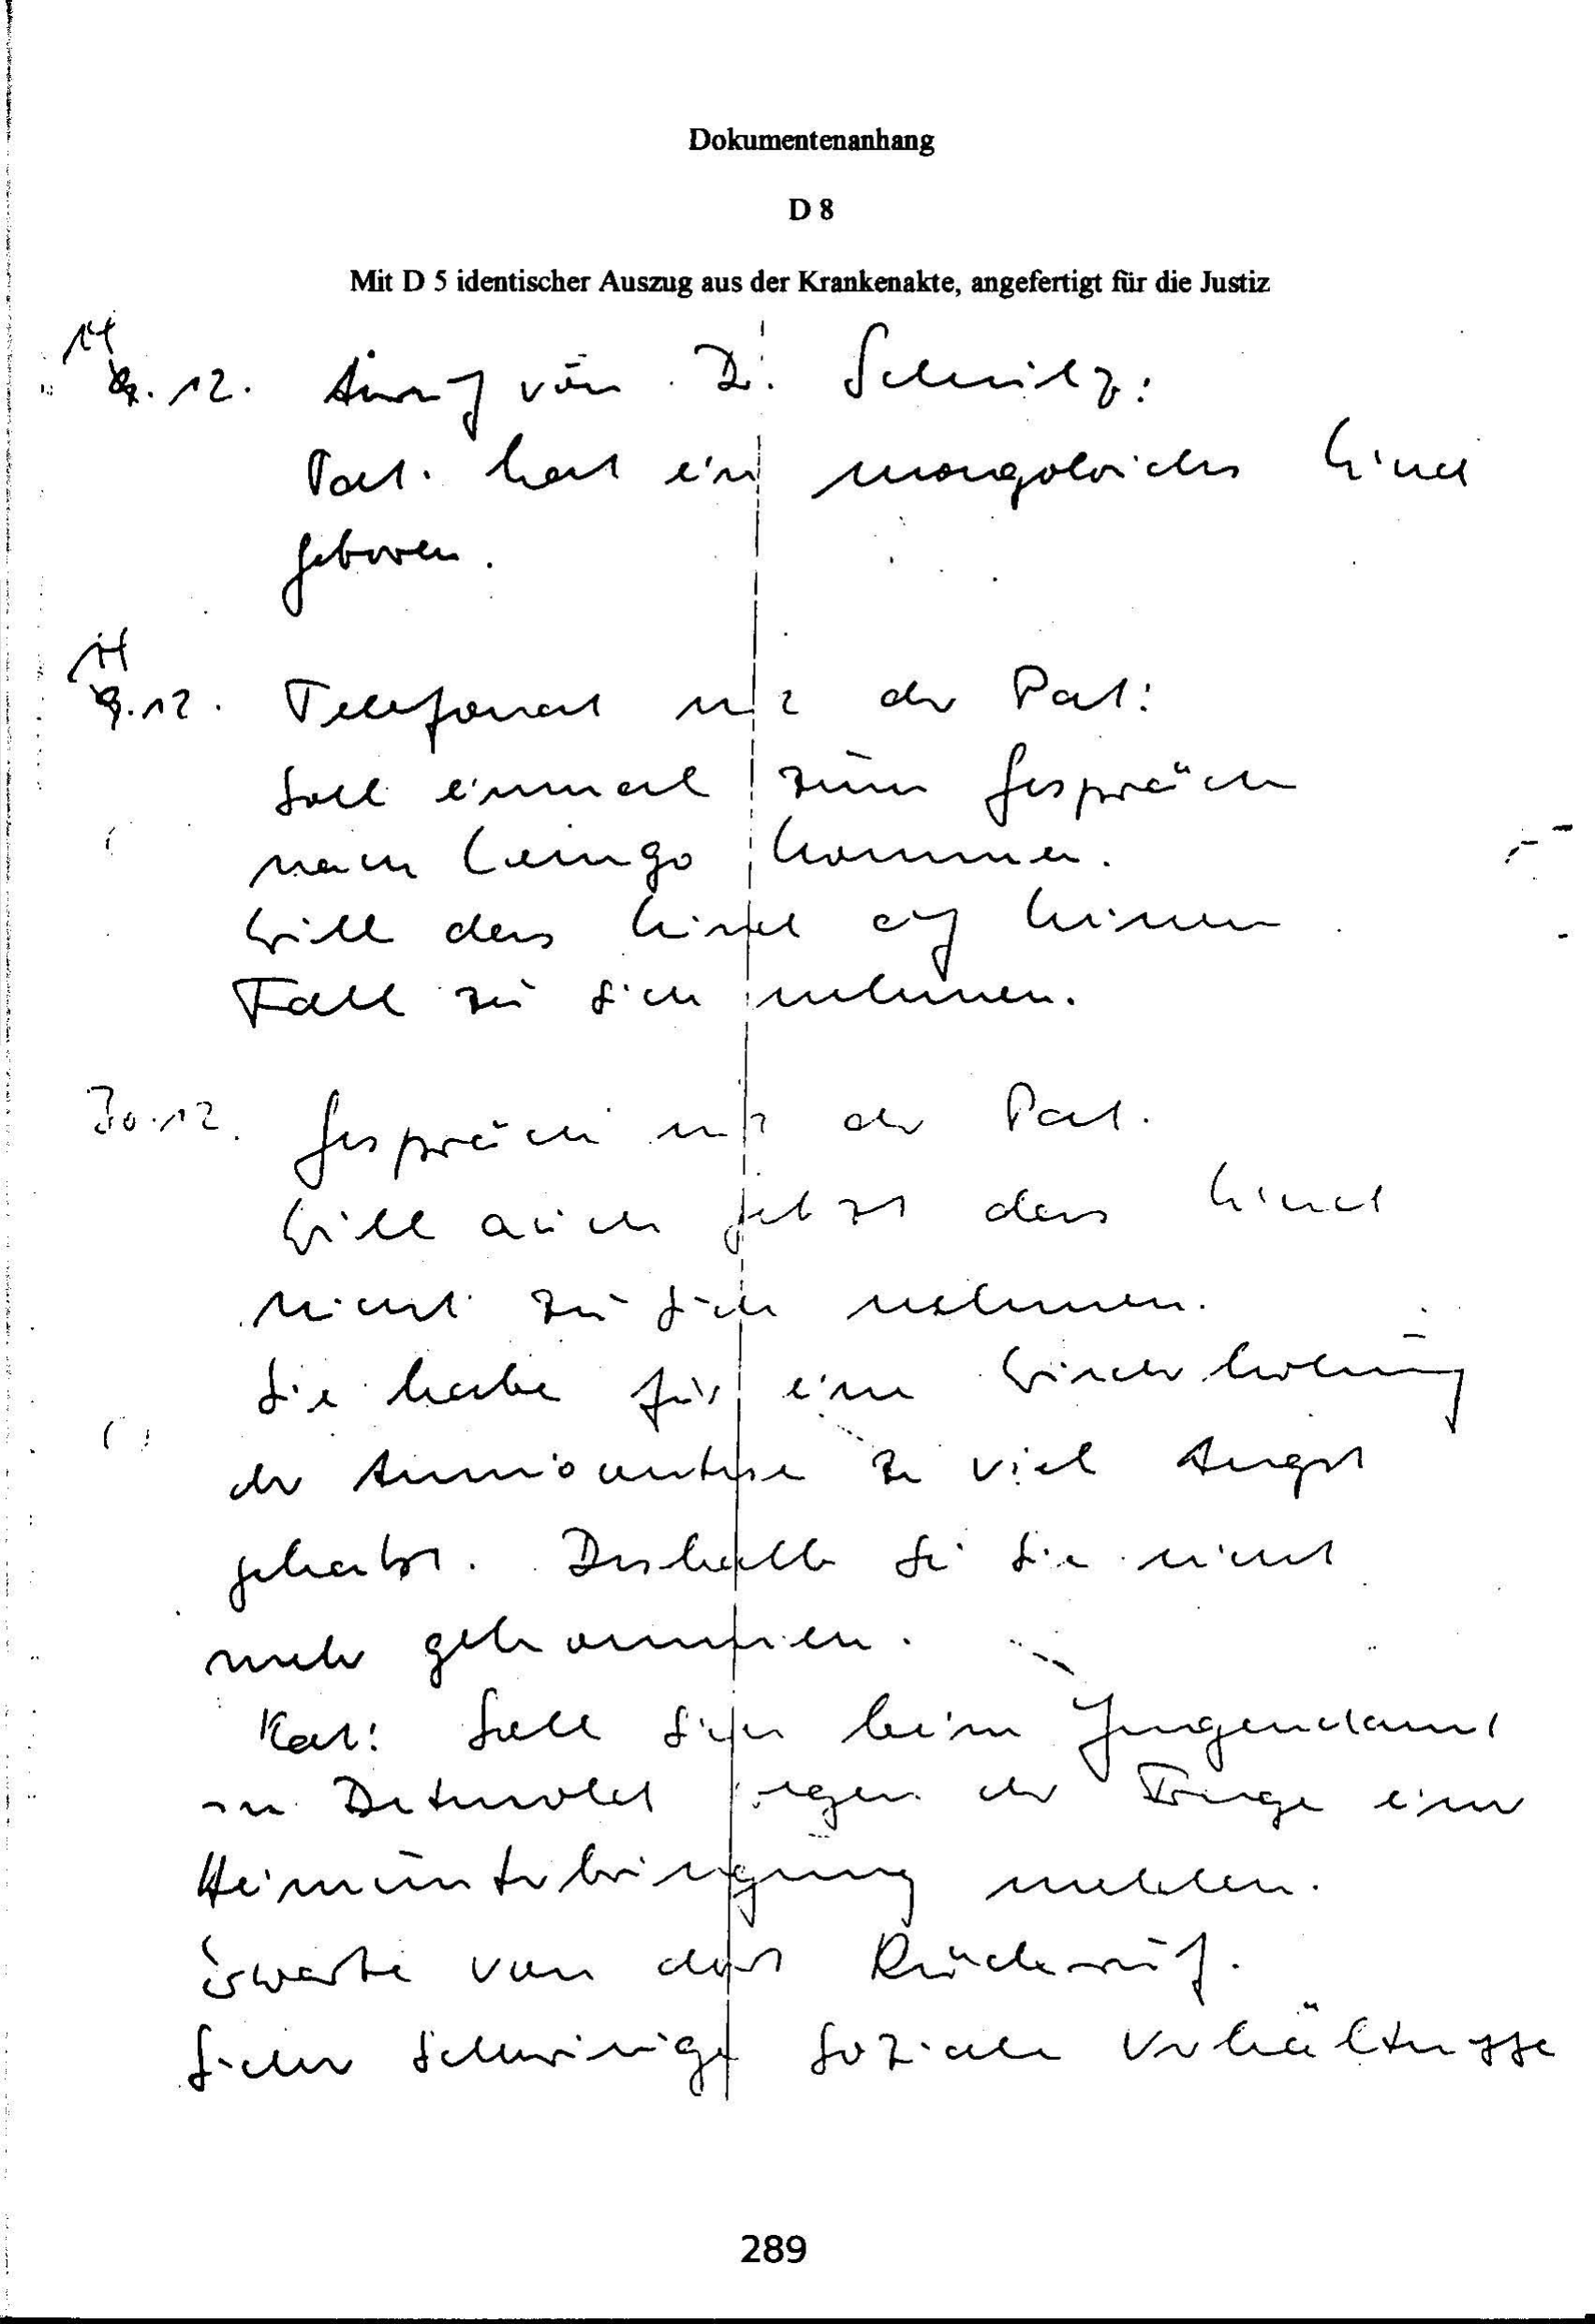 Dokumentenanhang
D 8
Mit D 5 identischer Auszug aus der Krankenakte, angefertigt für die Justiz
14
9. 12. Anruf von Dr. Schulz:
Pat. hat ein mongoloides Kind
geboren.
14
9.12. Telefonat mit der Pat:
Soll einmal zum Gespräch
nach Lemgo kommen.
Will das Kind auf keinen
Fall zu sich nehmen.
30.12. Gespräch mit der Pat.
Will auch jetzt das Kind
nicht zu sich nehmen.
Sie habe für eine Wiederholung
der Amniocentese zu viel Angst
gehabt. Deshalb sei sie nicht
mehr gekommen.
Rat: Soll sich beim Jugendamt
in Detmold wegen der Frage einer
Heimunterbringung melden.
Erwarte von dort Rückruf.
Sicher schwierige soziale Verhältnisse
289